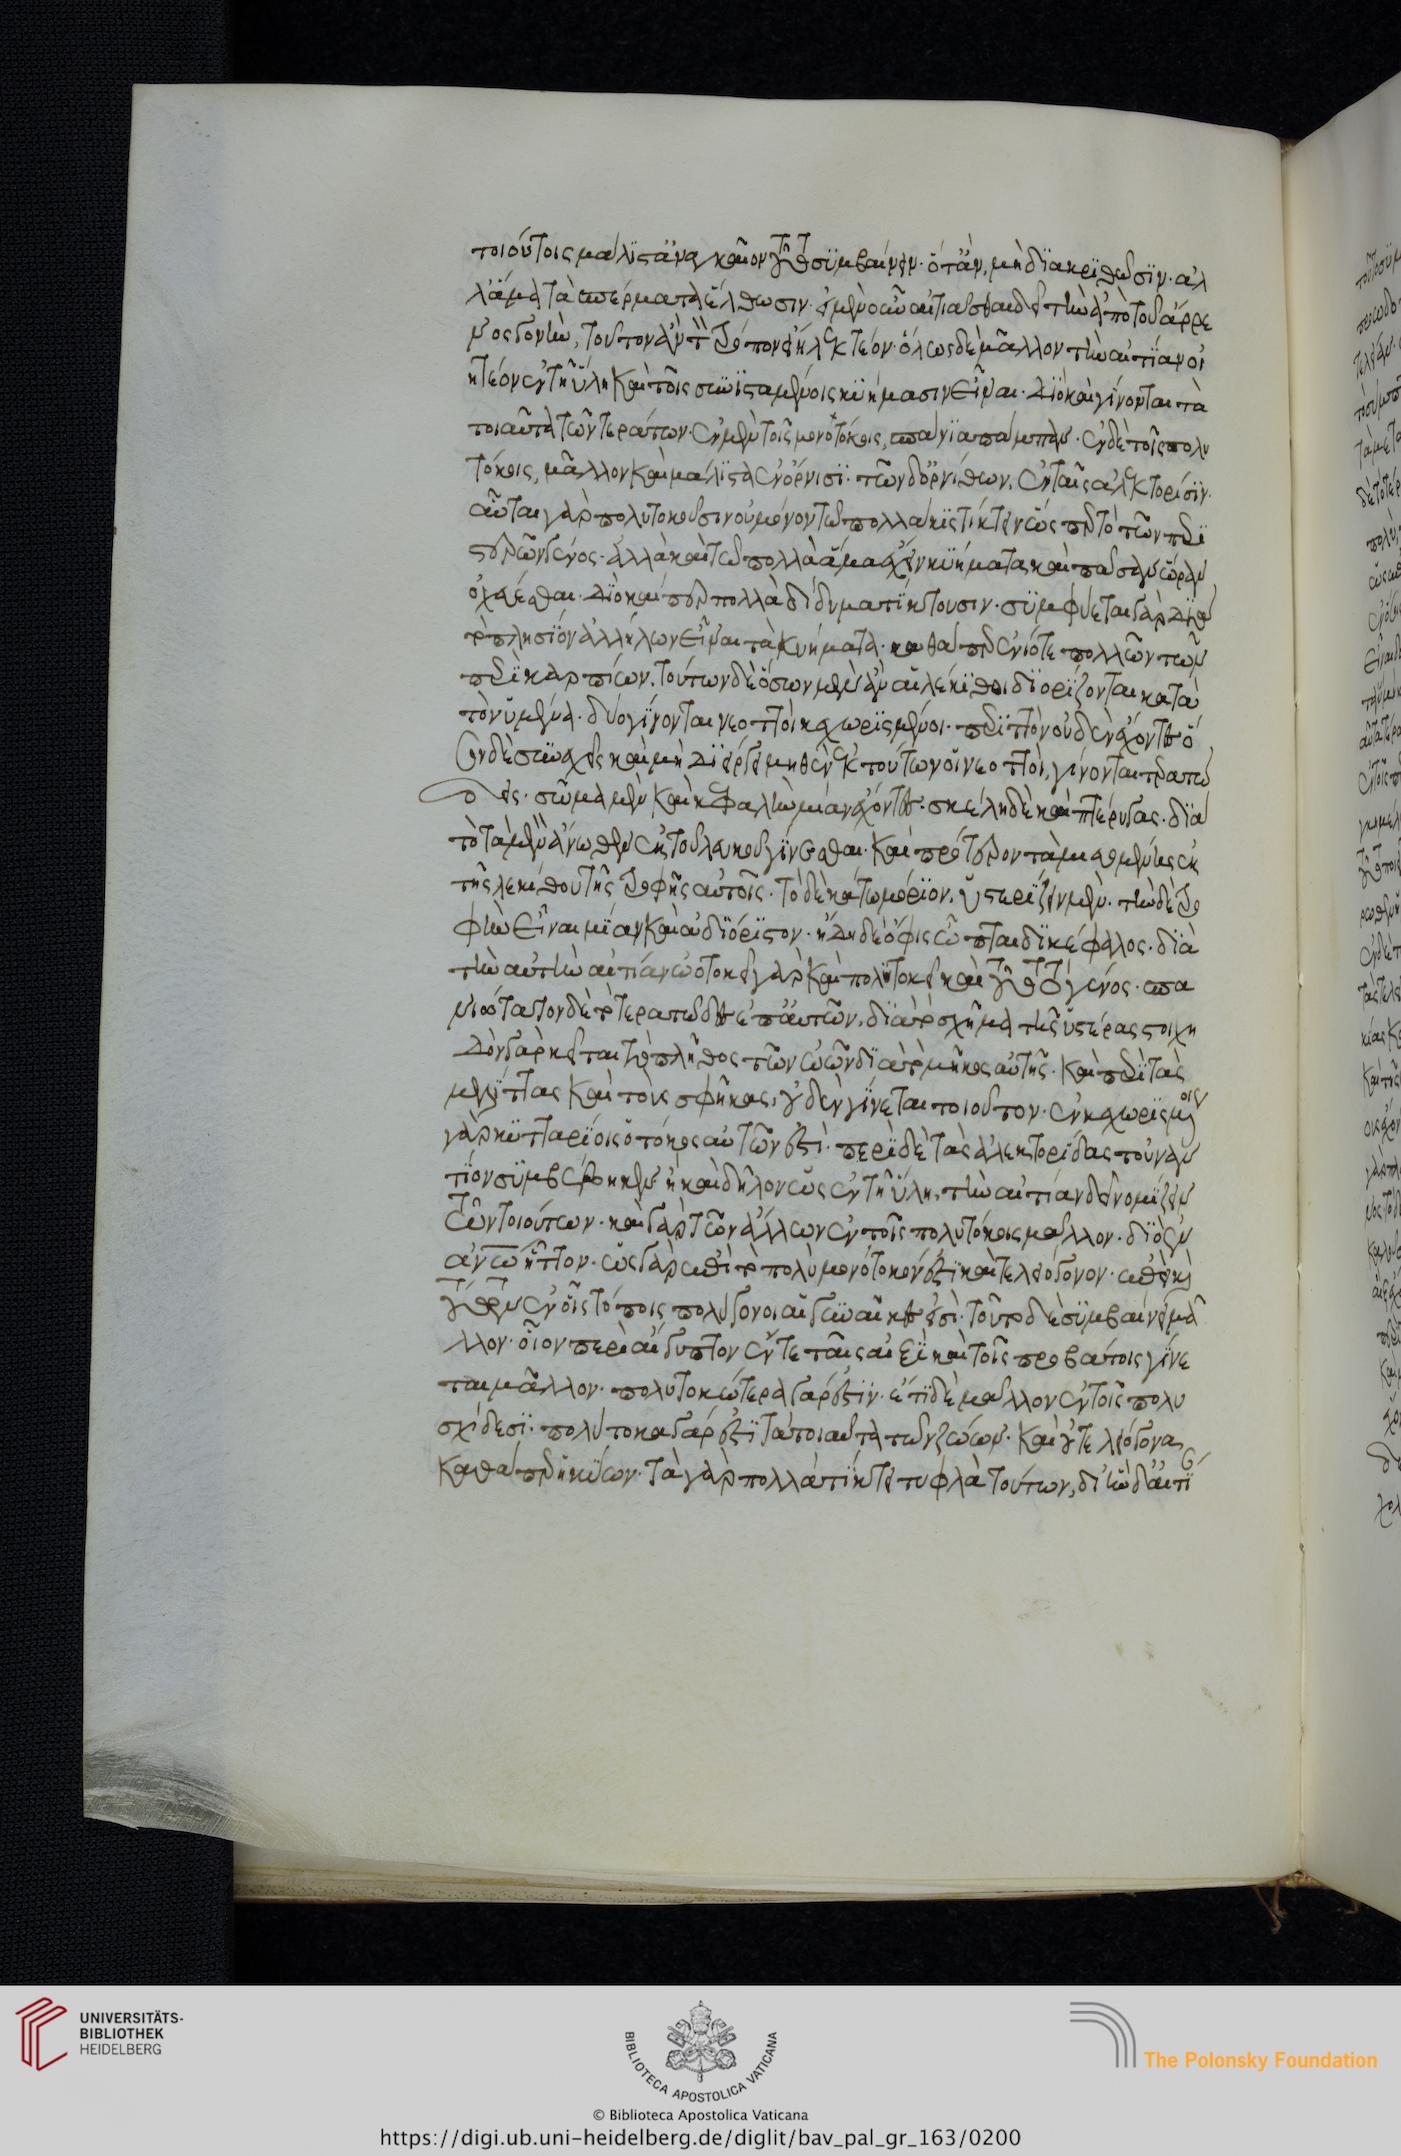 τοιούτοις μάλιστα ἀναγκαῖον τοῦτο συμβαίνειν· ὅταν μὴ διακριθῶσιν· ἀλ
λ' ἅμα τὰ σπέρματα ἔλθωσιν· εἰ μὲν οὖν αἰτιᾶσθαι δεῖ τὴν ἀπὸ τοῦ ἄρρε
νος γονὴν, τοῦτον ἂν τὸν τρόπον εἴη λεκτέον· ὅλως δὲ μᾶλλον τὴν αἰτίαν οἰ
ητέον ἐν τῇ ὕλῃ καὶ τοῖς συνισταμένοις κυήμασιν εἶναι· διὸ καὶ γίνονται τὰ
τοιαῦτα τῶν τεράτων· ἐν μὲν τοῖς μονοτόκοις, σπάνια πάμπαν· ἐν δὲ τοῖς πολυ
τόκοις, μᾶλλον καὶ μάλιστα ἐν ὄρνισι· τῶν δ' ὀρνίθων, ἐν ταῖς ἀλεκτορίσιν·
αὗται γὰρ πολυτοκοῦσιν οὐ μόνον τῷ πολλάκις τίκτειν ὥσπερ τὸ τῶν περι
στερῶν γένος· ἀλλὰ καὶ τῷ πολλὰ ἅμα ἔχειν κυήματα καὶ πᾶσαν ὥραν
ὀχεύεσθαι· διὸ καὶ πολλὰ δίδυμα τίκτουσιν· συμφύεται γὰρ διὰ
τὸ πλησίον ἀλλήλων εἶναι τὰ κυήματα· καθάπερ ἐνίοτε πολλῶν τῶν
περικαρπίων. τούτων δὲ ὅσων μὲν ἂν αἱ λέκιθοι διορίζονται κατὰ
τὸν ὑμένα· δύο γίνονται νεοττοὶ κεχωρισμένοι· περιττὸν οὐδὲν ἔχοντες· ὅ
σων δὲ συνεχεῖς καὶ μὴ διείργει μηθὲν ἐκ τούτων οἱ νεοττοὶ, γίνονται τερατώ
δεις· σῶμα μὲν καὶ κεφαλὴν μίαν ἔχοντες· σκέλη δὲ καὶ πτέρυγας· διὰ
τὸ τὰ μὲν ἄνωθεν ἐκ τοῦ λευκοῦ γίνεσθαι· καὶ πρότερον ταμιευομένης ἐκ
τῆς λεκίθου τῆς τροφῆς αὐτοῖς· τὸ δὲ κάτω μόριον, ὑστερίζειν μὲν· τὴν δὲ τρο
φὴν εἶναι μίαν καὶ ἀδιόριστον· ἤδη δὲ ὄφις ὦπται δικέφαλος· διὰ
τὴν αὐτὴν αἰτίαν ὠοτοκεῖ γὰρ καὶ πολυτοκεῖ καὶ τοῦτο τὸ γένος· σπα
νιώτατον δὲ τὸ τερατῶδες ἐπ' αὐτῶν, διὰ τὸ σχῆμα τῆς ὑστέρας στοιχη
δὸν γὰρ κεῖται τὸ πλῆθος τῶν ὠῶν διὰ τὸ μῆκος αὐτῆς· καὶ περὶ τὰς
μελίττας καὶ τοὺς σφῆκας, οὐδὲν γίνεται τοιοῦτον· ἐν κεχωρισμένοις
γὰρ κυτταρίοις ὁ τόκος αὐτῶν ἐστί· περὶ δὲ τὰς ἀλεκτορίδας τοὐναν
τίον συμβέβηκεν ᾗ καὶ δῆλον ὡς ἐν τῇ ὕλῃ, τὴν αἰτίαν δεῖ νομίζειν
τῶν τοιούτων· καὶ γὰρ τῶν ἄλλων ἐν τοῖς πολυτόκοις μᾶλλον· διὸ ἐν
ἀνθρώπῳ ἧττον· ὡς γὰρ ἐπὶ τὸ πολὺ μονοτόκον ἐστὶ καὶ τελειόγονον· ἐπεὶ καὶ
τούτων ἐν οἷς τόποις πολύγονοι αἱ γυναῖκές εἰσι· τοῦτο δὲ συμβαίνει μᾶ
λλον· οἷον περὶ αἴγυπτον ἔν τε ταῖς αἰξὶ καὶ τοῖς προβάτοις γίνε
ται μᾶλλον· πολυτοκώτερα γάρ ἐστιν· ἔτι δὲ μᾶλλον ἐν τοῖς πολυ
σχιδέσι· πολυτόκα γάρ ἐστι τὰ τοιαῦτα τῶν ζώων· καὶ οὐ τελειόγονα
καθάπερ ἡ κύων· τὰ γὰρ πολλὰ τίκτει τυφλὰ τούτων, δι' ἣν δ' αἰτί
UNIVERSITÄTS-
BIBLIOTHEK
HEIDELBERG
BIBLIOTECA APOSTOLICA VATICANA
The Polonsky Foundation
© Biblioteca Apostolica Vaticana
https://digi.ub.uni-heidelberg.de/diglit/bav_pal_gr_163/0200